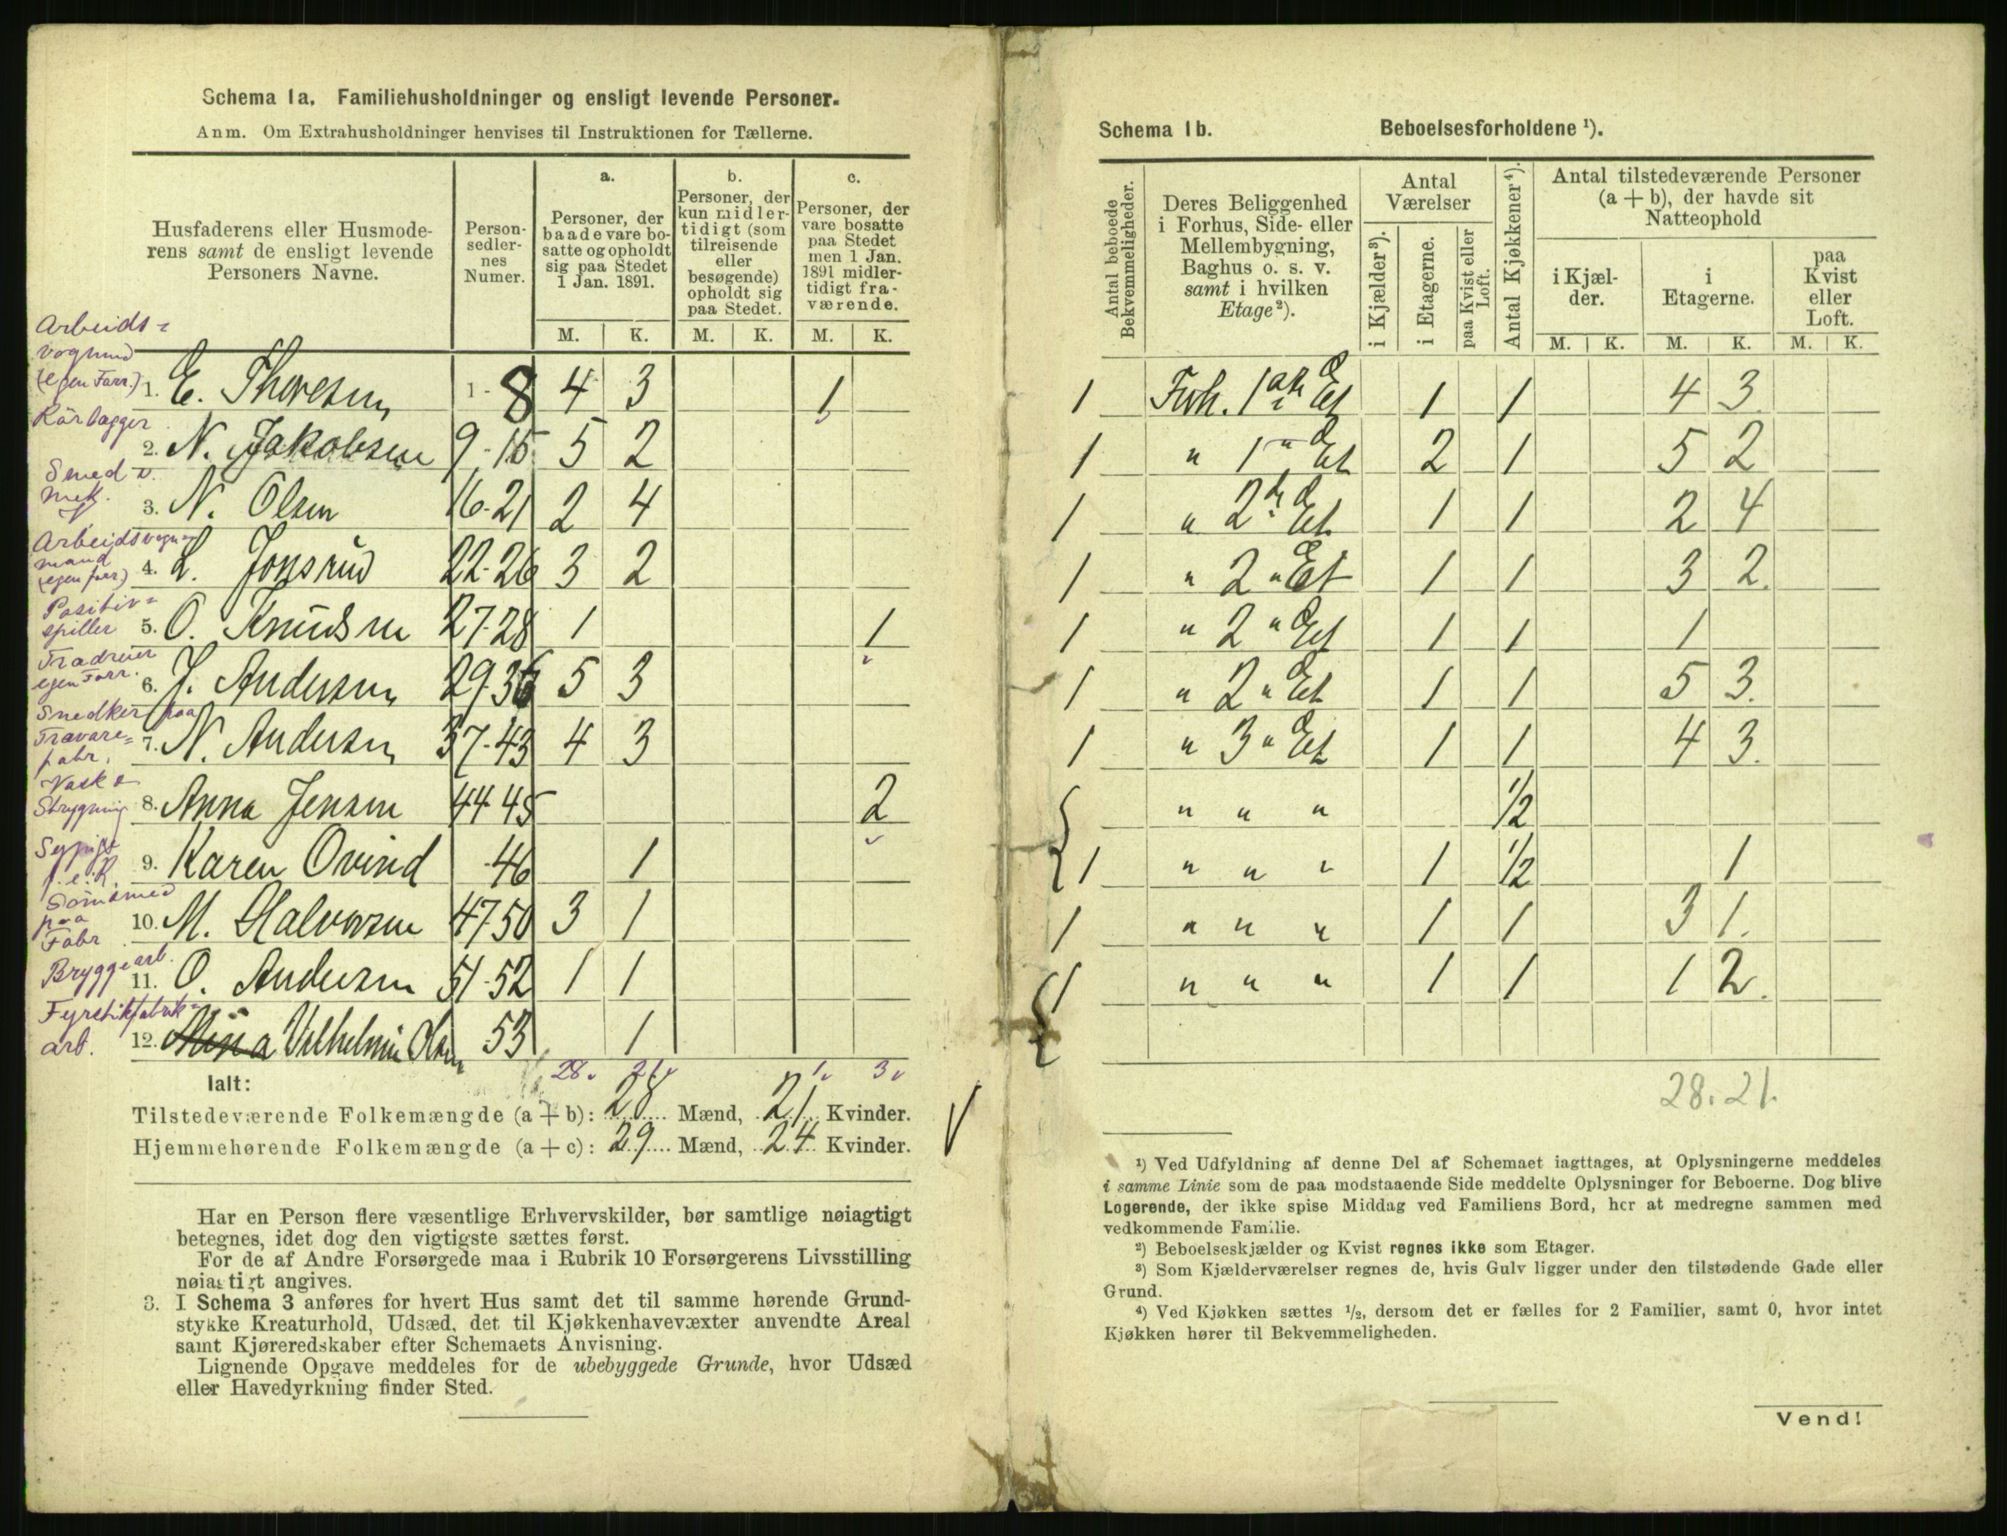 Schema 1a. Familiehusholdninger og ensligt levende Personer.
Anm. Om Extrahusholdninger henvises til Instruktionen for Tællerne.
Husfaderens eller Husmode-
rens samt de ensligt levende
Personers Navne.
Person-
sedler-
nes
Numer.
a.
Personer, der
baade vare bo-
satte og opholdt
sig paa Stedet
1 Jan. 1891.
b.
Personer, der
kun midler-
tidigt (som
tilreisende
eller
besøgende)
opholdt sig
paa Stedet.
c.
Personer, der
vare bosatte
paa Stedet
men 1 Jan.
1891 midler-
tidigt fra-
værende.
M. K. M. K. M. K.
Arbeids-
vognmd
(egen Forr.)
1. E. Thoresen 1-8 4 3 1
Rörlægger
2. N. Jakobsen 9-15 5 2
Smed v.
mek.
3. N. Olsen 16-21 2 4
Arbeidsvogn-
mand
(egen forr)
4. L. Jonsrud 22-26 3 2
Positiv-
spiller
5. O. Knudsen 27-28 1 1
Trædreier
egen Forr.
6. J. Andersen 29-36 5 3
Snedker paa
Trævare-
fabr.
7. N. Andersen 37-43 4 3
Vask &
Strygning
8. Anna Jensen 44-45 2
Sypige
f. e. R.
9. Karen Ovind 46 1
Sömsmed
paa
Fabr
10. M. Halvorsen 47-50 3 1
Bryggearb.
11. O. Andersen 51-52 1 1
Fyrstikfabrik-
arb.
12. Mina Vilhelmin Olsen 53 1
28 21 1 3
Ialt:
Tilstedeværende Folkemængde (a + b): 28 Mænd, 21 Kvinder.
Hjemmehørende Folkemængde (a + c): 29 Mænd, 24 Kvinder.
Har en Person flere væsentlige Erhvervskilder, bør samtlige nøiagtigt
betegnes, idet dog den vigtigste sættes først.
For de af Andre Forsørgede maa i Rubrik 10 Forsørgerens Livsstilling
nøiagtigt angives.
3. I Schema 3 anføres for hvert Hus samt det til samme hørende Grund-
stykke Kreaturhold, Udsæd, det til Kjøkkenhavevæxter anvendte Areal
samt Kjøreredskaber efter Schemaets Anvisning.
Lignende Opgave meddeles for de ubebyggede Grunde, hvor Udsæd
eller Havedyrkning finder Sted.
Schema 1b. Beboelsesforholdene ¹).
Antal beboede
Bekvemmeligheder.
Deres Beliggenhed
i Forhus, Side- eller
Mellembygning,
Baghus o. s. v.
samt i hvilken
Etage ²).
Antal
Værelser
i Kjælder ³).
i Etagerne.
paa Kvist eller
Loft.
Antal Kjøkkener ⁴).
Antal tilstedeværende Personer
(a + b), der havde sit
Natteophold
i Kjæl-
der.
i
Etagerne.
paa
Kvist
eller
Loft.
M. K. M. K. M. K.
1 Forh. 1ste Et 1 1 4 3
1 " 1 " Et 2 1 5 2
1 " 2den Et 1 1 2 4
1 " 2 " Et 1 1 3 2
1 " 2 " Et 1 1 1
1 " 2 " Et 1 1 5 3
1 " 3 " Et 1 1 4 3
" " " 1/2
1 " " " 1 1/2 1
1 " " " 1 1 3 1
1 " " " 1 1 1 2
28. 21.
¹) Ved Udfyldning af denne Del af Schemaet iagttages, at Oplysningerne meddeles
i samme Linie som de paa modstaaende Side meddelte Oplysninger for Beboerne. Dog blive
Logerende, der ikke spise Middag ved Familiens Bord, her at medregne sammen med
vedkommende Familie.
²) Beboelseskjælder og Kvist regnes ikke som Etager.
³) Som Kjælderværelser regnes de, hvis Gulv ligger under den tilstødende Gade eller
Grund.
⁴) Ved Kjøkken sættes ¹/₂, dersom det er fælles for 2 Familier, samt 0, hvor intet
Kjøkken hører til Bekvemmeligheden.
Vend!